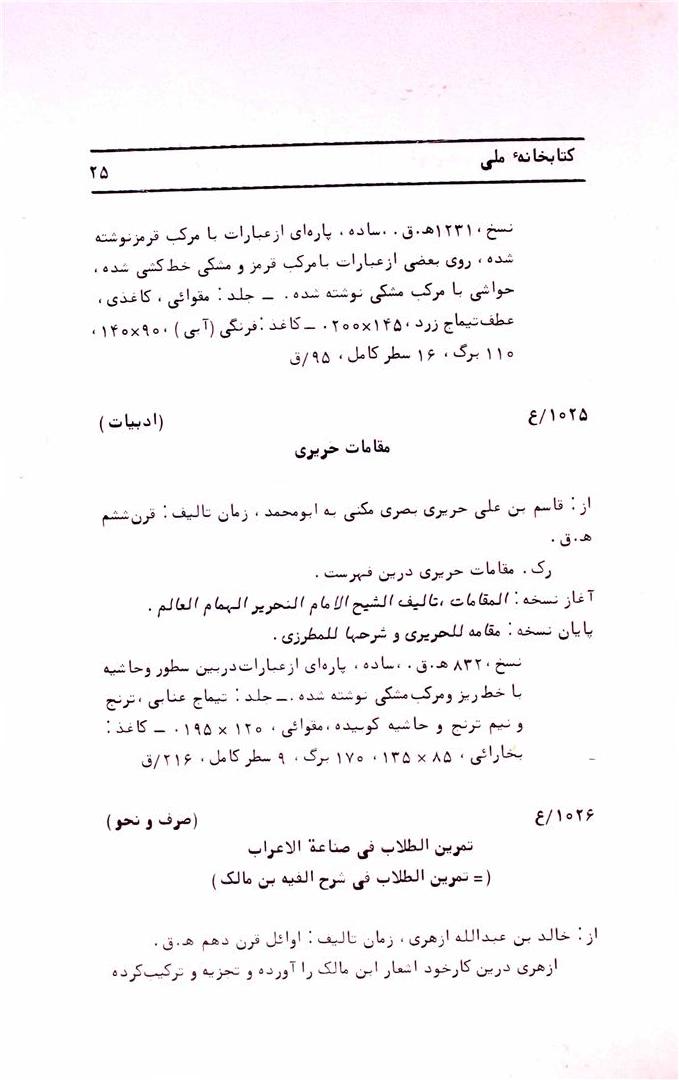 کتابخانهٔ ملی
۲۵
نسخ ، ۱۲۳۱ه‍.ق. ،ساده ، پاره‌ای ازعبارات با مرکب قرمزنوشته
شده ، روی بعضی ازعبارات بامرکب قرمز و مشکی خط‌کشی شده ،
حواشی با مرکب مشکی نوشته شده . ــ جلد : مقوائی ، کاغذی ،
عطف‌تیماج زرد ، ۱۴۵×۲۰۰. ــ کاغذ :فرنگی (آبی ) ، ۹۰×۱۴۰ ،
۱۱۰ برگ ، ۱۶ سطر کامل ، ۹۵/ق
۱۰۲۵/ع
(ادبیات )
مقامات حریری
از : قاسم بن علی حریری بصری مکنی به ابومحمد ، زمان تالیف : قرن‌ششم
ه‍.ق .
رک . مقامات حریری درین فهرست .
آغاز نسخه : المقامات ،تالیف الشیخ الامام النحریر الهمام العالم .
پایان نسخه : مقامه للحریری و شرحها للمطرزی .
نسخ ، ۸۳۲ ه‍.ق. ،ساده ، پاره‌ای ازعبارات‌دربین سطور وحاشیه
با خط‌ریز ومرکب‌مشکی نوشته شده .ــ جلد : تیماج عنابی ،ترنج
و نیم ترنج و حاشیه کوبیده ،مقوائی ، ۱۲۰ × ۱۹۵. ــ کاغذ :
بخارائی ، ۸۵ × ۱۳۵ ، ۱۷۰ برگ ، ۹ سطر کامل ، ۲۱۶/ق
۱۰۲۶/ع
(صرف و نحو )
تمرین الطلاب فی صناعة الاعراب
(= تمرین الطلاب فی شرح الفیه بن مالک )
از : خالد بن عبدالله ازهری ، زمان تالیف : اوائل قرن دهم ه‍.ق .
ازهری درین کارخود اشعار ابن مالک را آورده و تجزیه و ترکیب‌کرده